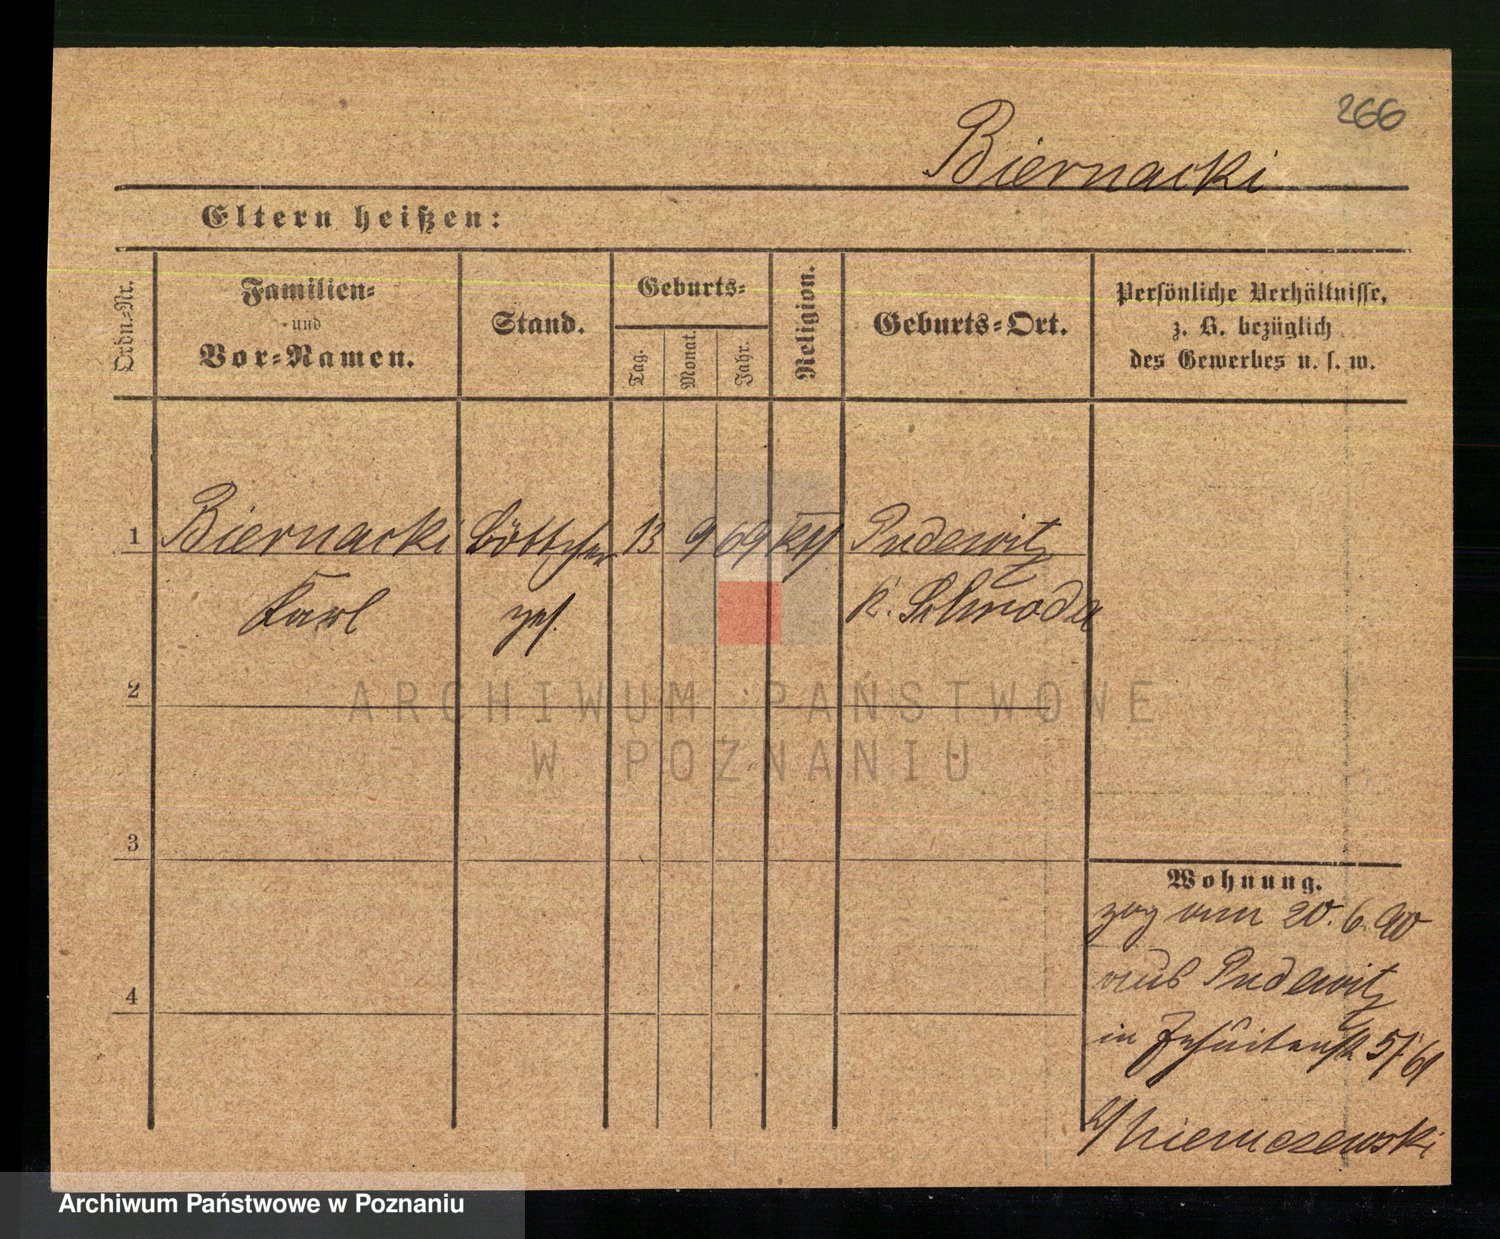 266
Biernacki
Eltern heißen:
Ordn.-Nr.
Familien-
und
Vor-Namen.
Stand.
Geburts-
Tag.
Monat.
Jahr.
Religion.
Geburts-Ort.
Persönliche Verhältnisse,
z. B. bezüglich
des Gewerbes u. s. w.
1 Biernacki Böttcher 13 9 69 kth Pudewitz
Karl ges. K. Schroda
2
3
4
Wohnung.
zog am 20. 6. 90
aus Pudewitz
in Jesuitenstr 5/
b/ Niemczewski
ARCHIWUM PAŃSTWOWE
W POZNANIU
Archiwum Państwowe w Poznaniu